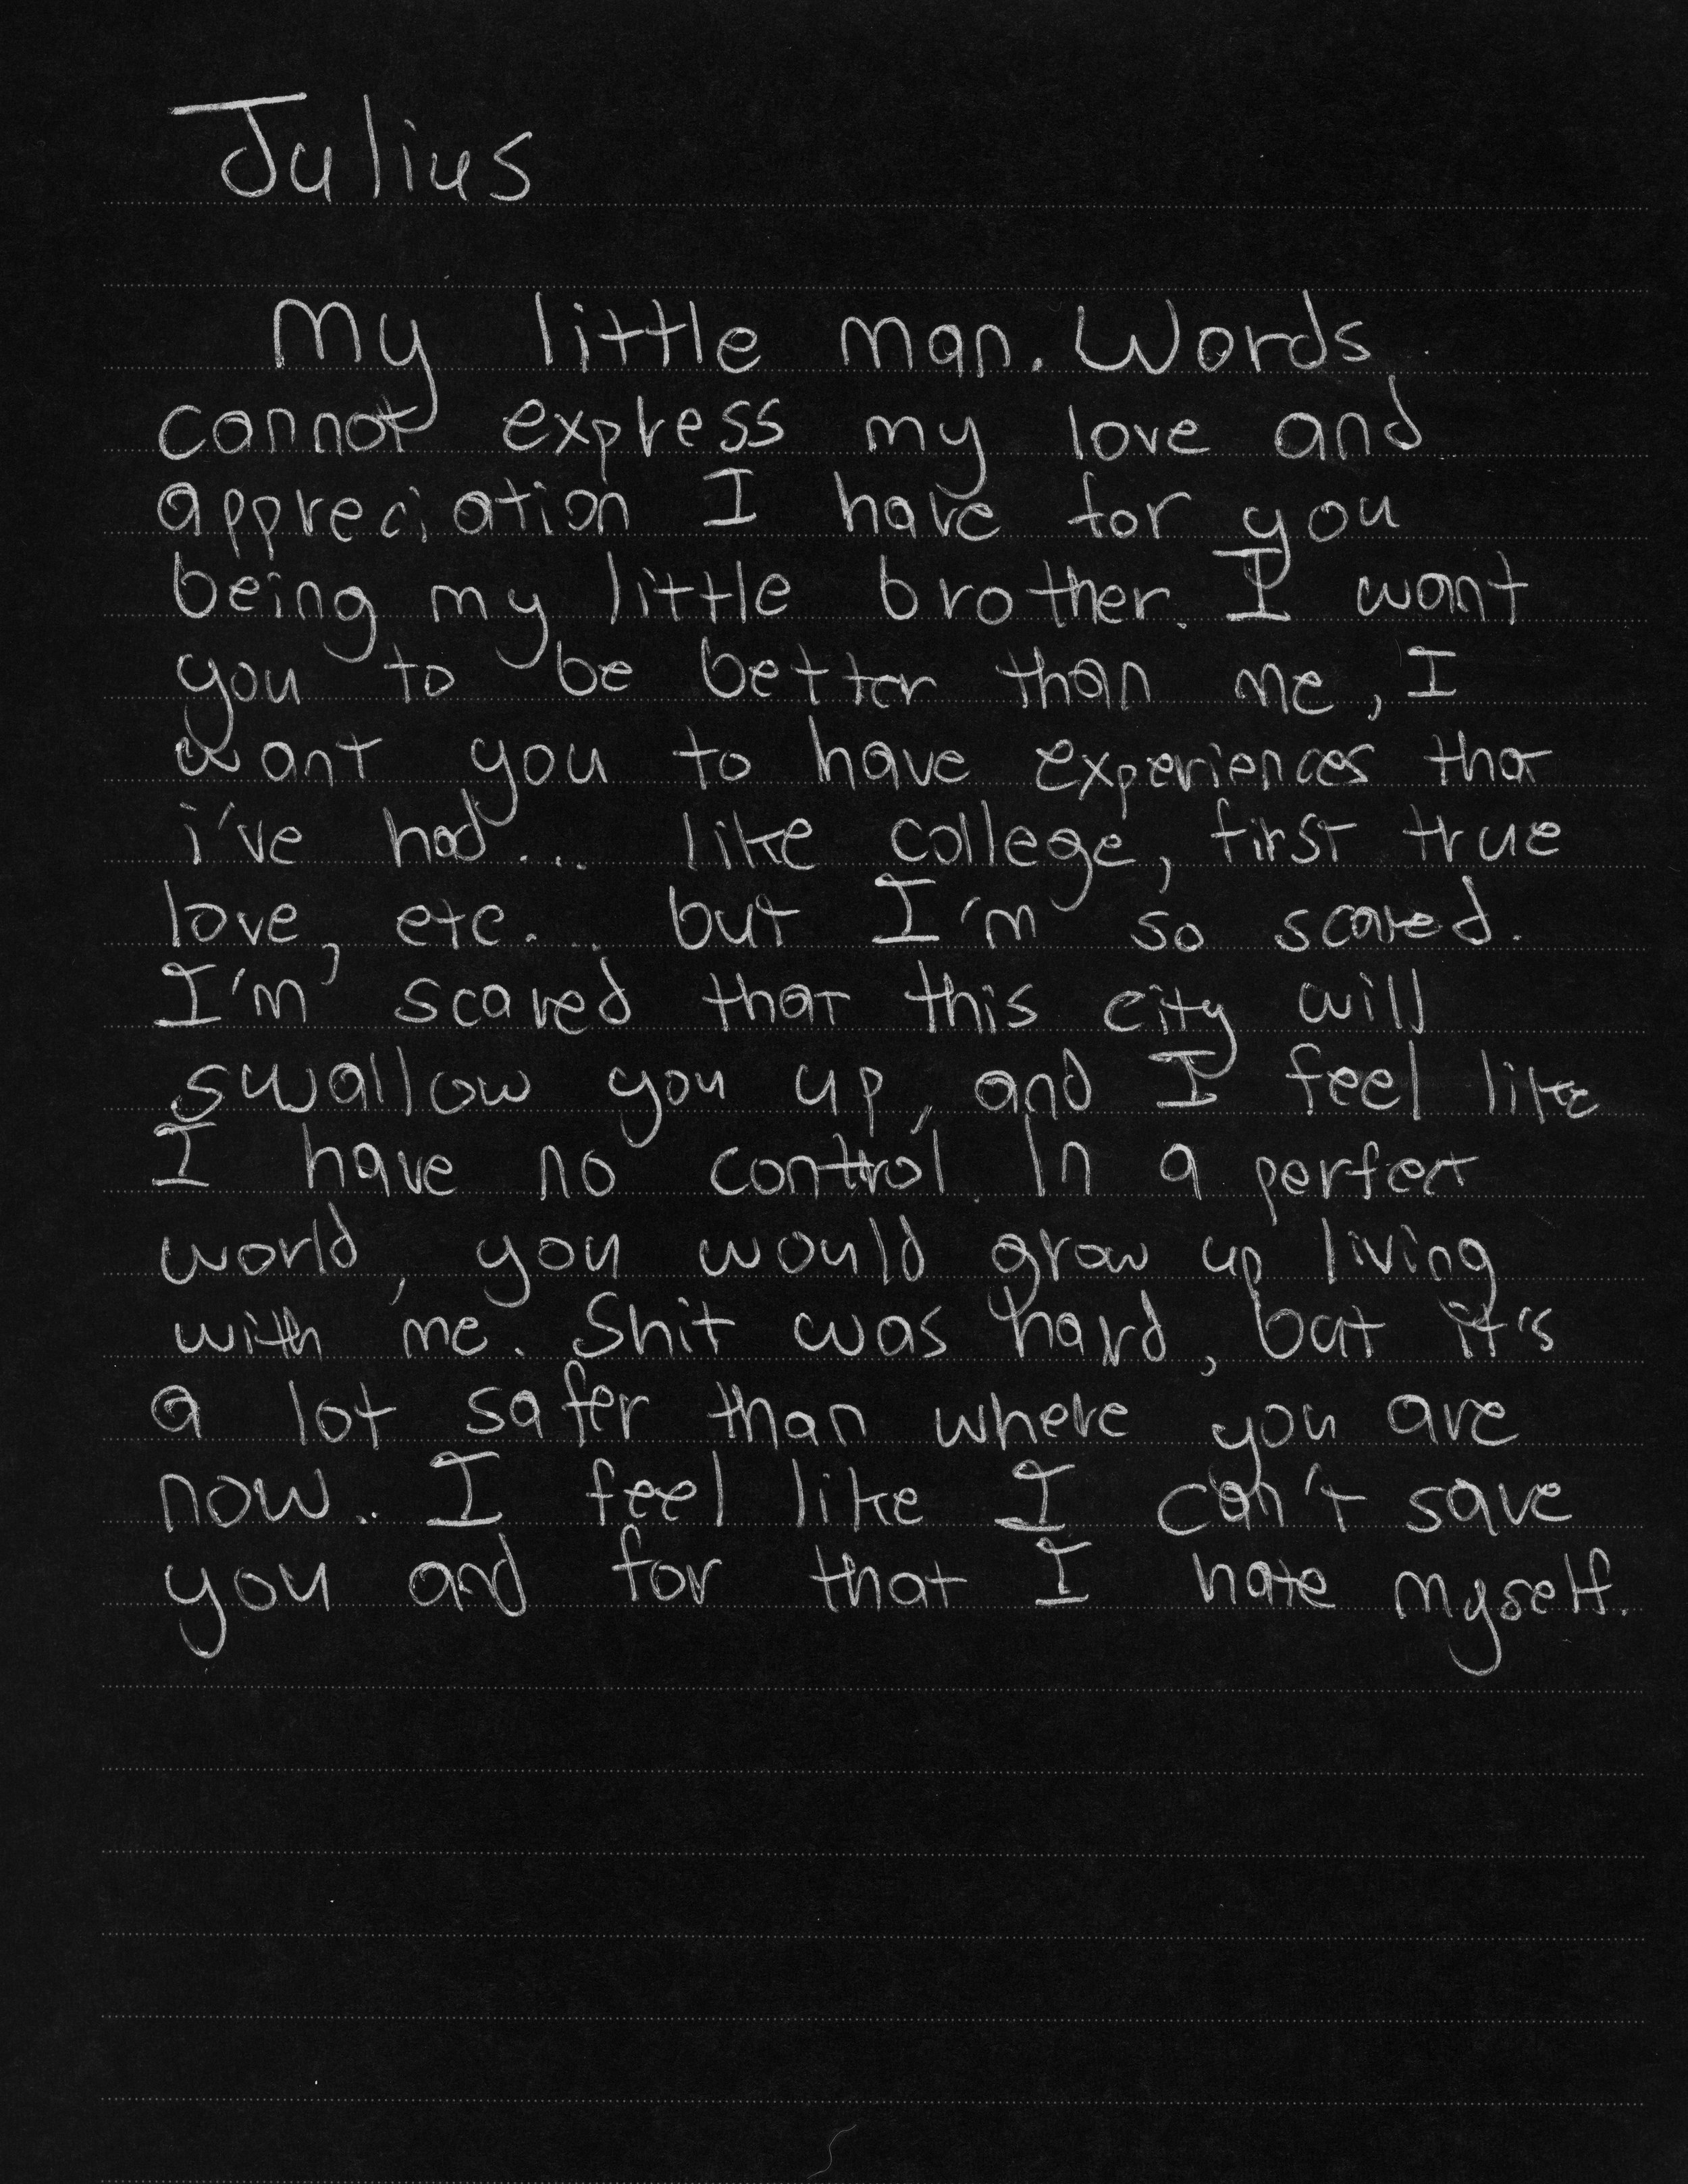 Julius
My little man. Words
cannot express my love and
appreciation I have for you
being my little brother. I want
you to be better than me, I
want you to have experiences that
i've had... like college, first true
love, etc... but I'm so scared.
I'm scared that this city will
swallow you up, and I feel like
I have no control. In a perfect
world, you would grow up living
with me. Shit was hard, but it's
a lot safer than where you are
now.. I feel like I can't save
you and for that I hate myself.